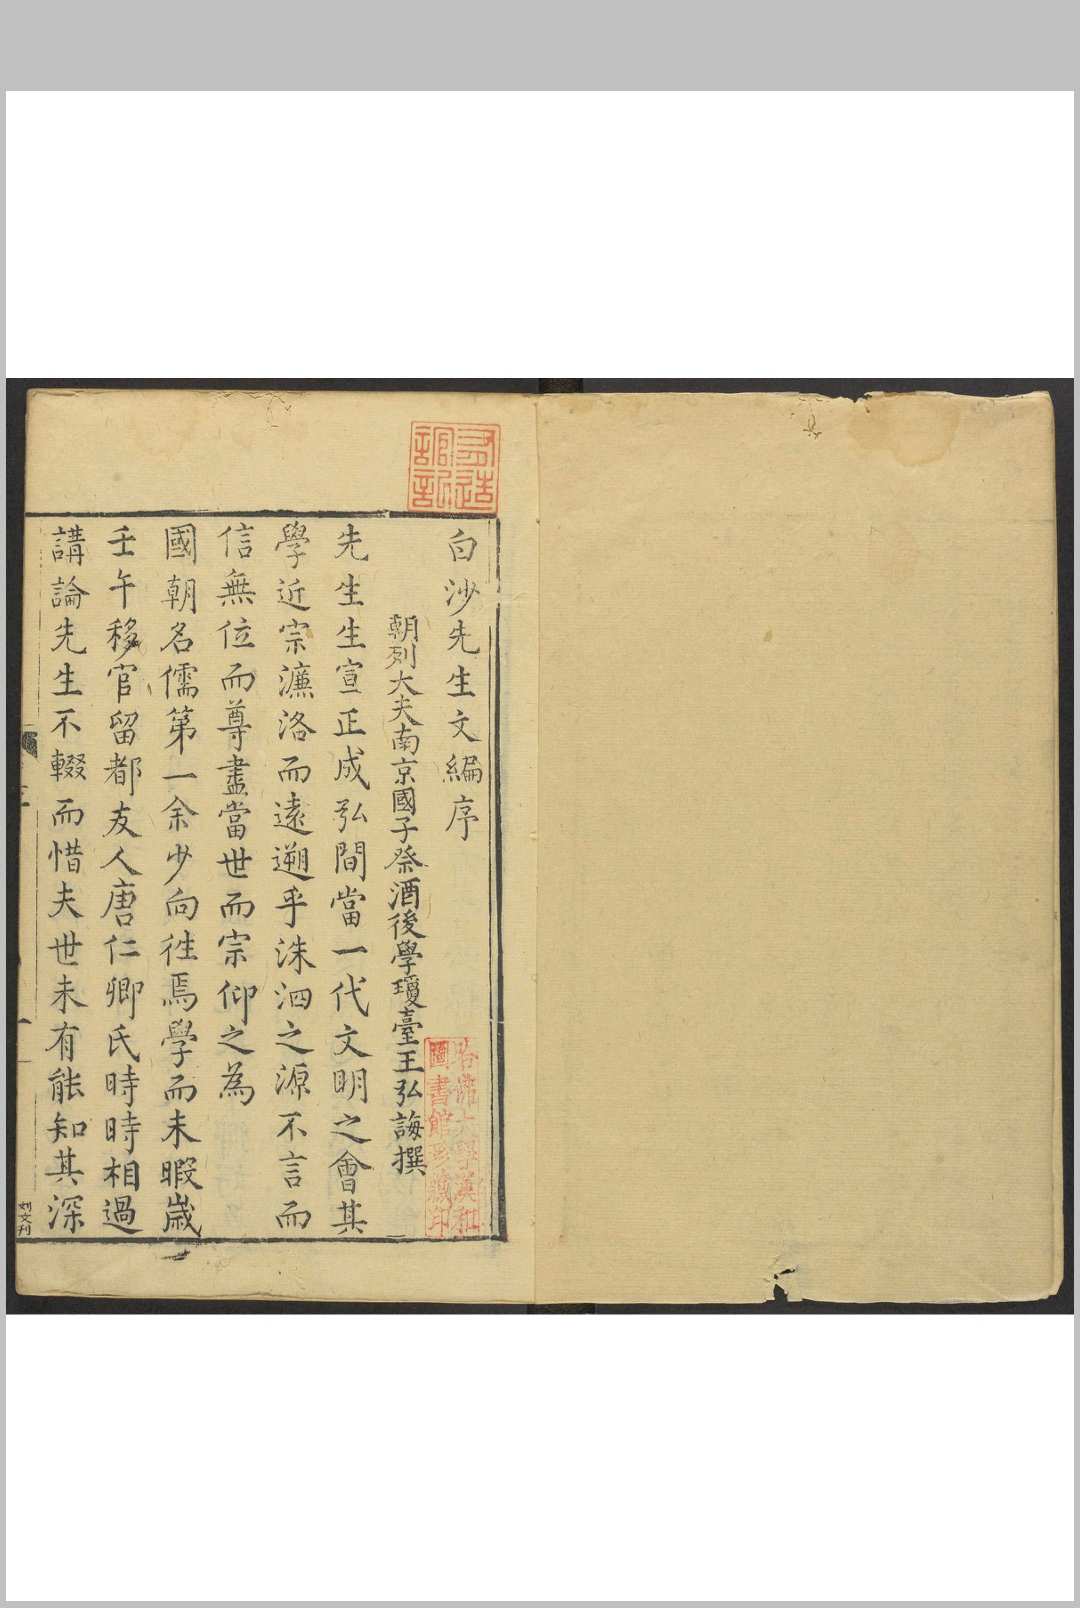 白沙先生文編序
朝列大夫南京國子祭酒後學瓊臺王弘誨撰
先生生宣正成弘間當一代文明之會其
學近宗濂洛而遠遡乎洙泗之源不言而
信無位而尊盡當世而宗仰之為
國朝名儒第一余少向徃焉學而未暇歲
壬午移官留都友人唐仁卿氏時時相過
講論先生不輟而惜夫世未有能知其深
哈佛大學漢和
圖書館珍藏印